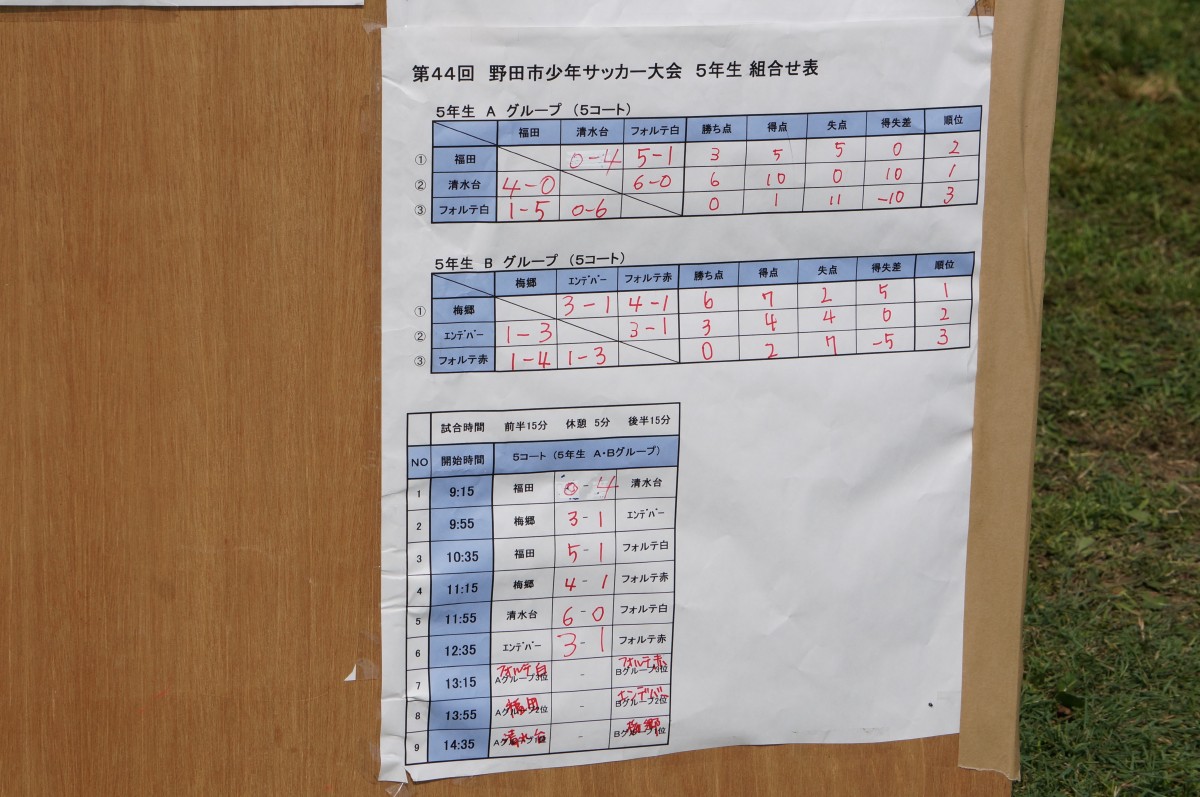 第44回 野田市少年サッカー大会 5年生 組合せ表
5年生 A グループ (5コート)
福田 清水台 フォルテ白 勝ち点 得点 失点 得失差 順位
① 福田 0-4 5-1 3 5 5 0 2
② 清水台 4-0 6-0 6 10 0 10 1
③ フォルテ白 1-5 0-6 0 1 11 -10 3
5年生 B グループ (5コート)
梅郷 エンデバー フォルテ赤 勝ち点 得点 失点 得失差 順位
① 梅郷 3-1 4-1 6 7 2 5 1
② エンデバー 1-3 3-1 3 4 4 0 2
③ フォルテ赤 1-4 1-3 0 2 7 -5 3
試合時間 前半15分 休憩 5分 後半15分
NO 開始時間 5コート (5年生 A・Bグループ)
1 9:15 福田 0-4 清水台
2 9:55 梅郷 3-1 エンデバー
3 10:35 福田 5-1 フォルテ白
4 11:15 梅郷 4-1 フォルテ赤
5 11:55 清水台 6-0 フォルテ白
6 12:35 エンデバー 3-1 フォルテ赤
フォルテ白 フォルテ赤
7 13:15 Aグループ3位 - Bグループ3位
福田 エンデバー
8 13:55 Aグループ2位 - Bグループ2位
清水台 梅郷
9 14:35 Aグループ1位 - Bグループ1位